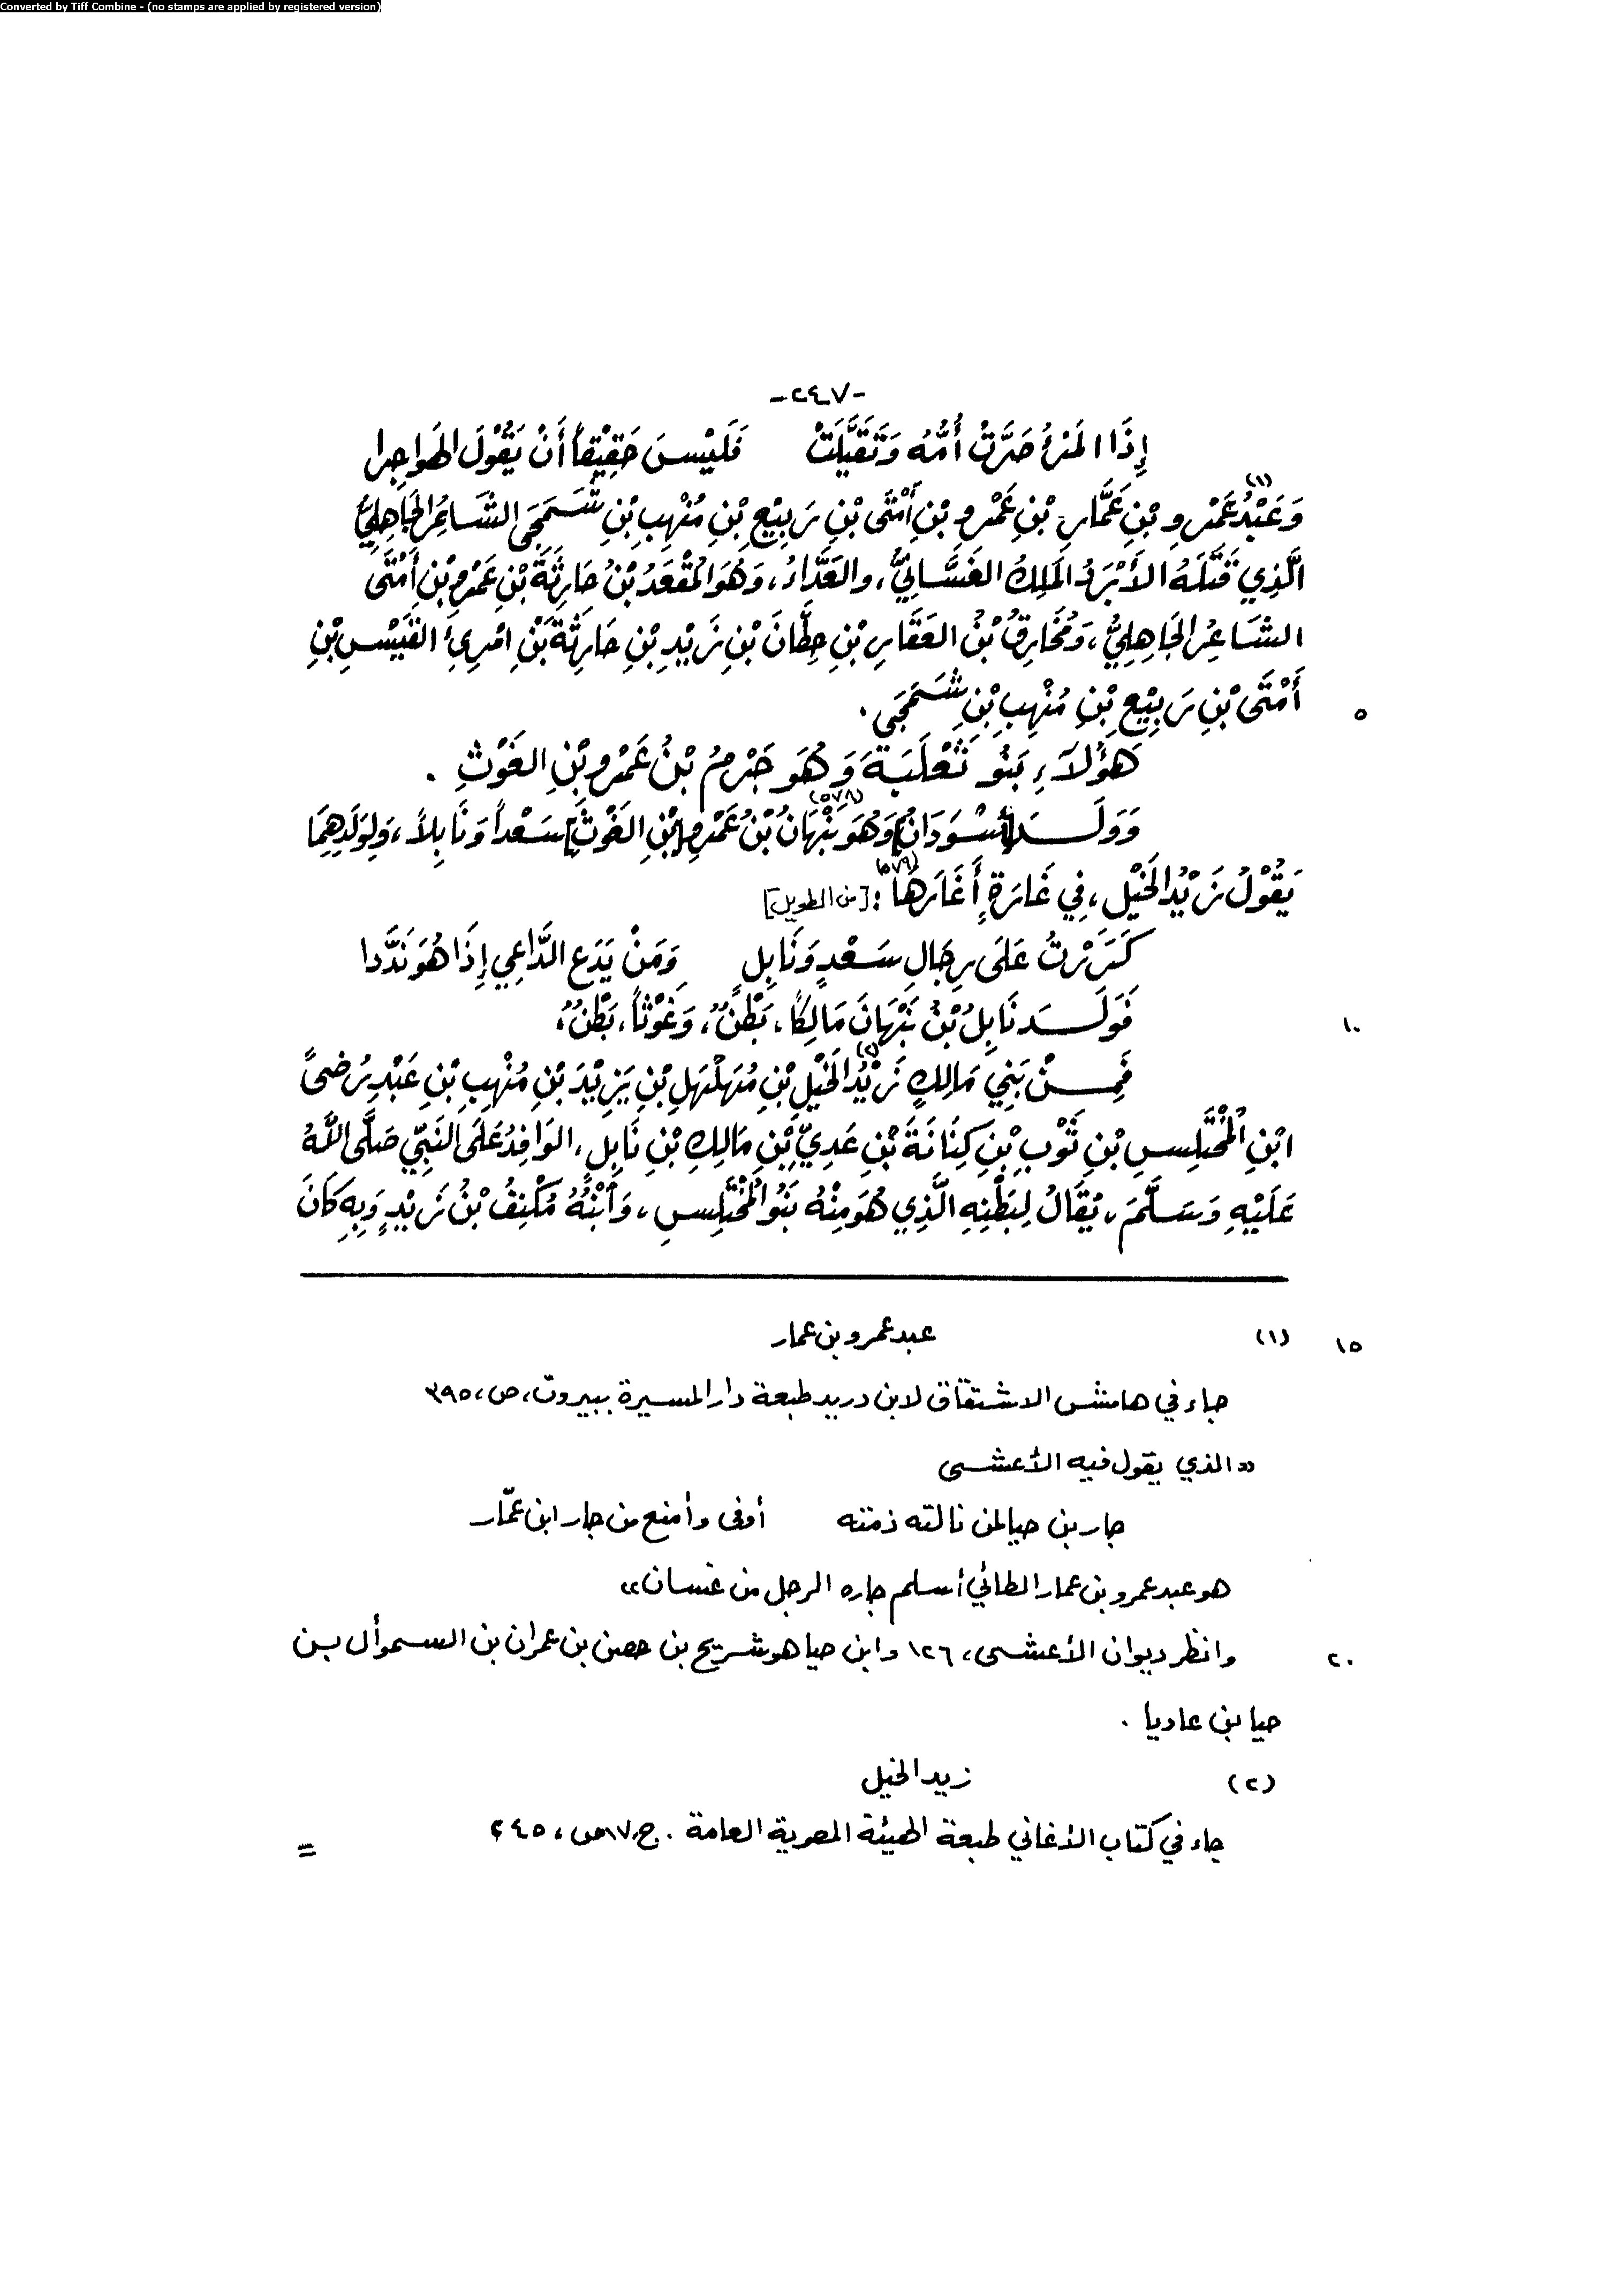 Converted by Tiff Combine - (no stamps are applied by registered version)
-٢٤٧-
إِذَا المَرْءُ صَرَّتْ أُمُّهُ وَتَقَيَّلَتْ فَلَيْسَ حَقِيْقاً أَنْ يَقُوْلَ الهَواجِرا
وَعَبْدُ عَمْرِو (١) بْنِ عَمَّارِ بْنِ عَمْرِو بْنِ أَمْتَى بْنِ رَبِيْعِ بْنِ مُنْهِبِ بْنِ شَمَجَى الشَاعِرُ الجَاهِلِيُّ
الَّذِي قَتَلَهُ الأَبْرَدُ المَلِكُ الغَسَّانِيُّ، والعَدَّاءُ، وَهُوَ المُقْعَدُ بْنُ حَارِثَةَ بْنِ عَمْرِو بْنِ أَمْتَى
الشَاعِرُ الجَاهِلِيُّ، وَمُخَارِقُ بْنُ العَقَارِ بْنِ حِطَّانَ بْنِ زَيْدِ بْنِ حَارِثَةَ بْنِ امْرِئِ القَيْسِ بْنِ
أَمْتَى بْنِ رَبِيْعِ بْنِ مُنْهِبِ بْنِ شَمَجَى. ٥
هَؤُلاَءِ بَنُو ثَعْلَبَةَ وَهُوَ جَرْمُ بْنُ عَمْرِو بْنِ الغَوْثِ.
وَوَلَـــدَ [أَسْوَدَانُ] وَهُوَ نَبْهَانُ (٥٧٨) بْنُ عَمْرِو [بْنِ الغَوْثِ] سَعْداً وَنَابِلاً، وَلِوَلَدِهِمَا
يَقُوْلُ زَيْدُ الخَيْلِ، فِي غَارَةٍ أَغَارَهَا (٥٧٩): [من الطويل]
كَرَرْتُ عَلَى رِجَالِ سَعْدٍ وَنَابِلٍ وَمَنْ يَدَعِ الدَّاعِي إِذَا هُوَ نَدَّدا
فَوَلَـــدَ نَابِلُ بْنُ نَبْهَانَ مَالِكاً، بَطْنٌ، وَغَوْثاً، بَطْنٌ، ١٠
فَمِـــنْ بَنِي مَالِكٍ زَيْدُ الخَيْلِ (٢) بْنِ مُهَلْهِلِ بْنِ يَزِيْدَ بْنِ مُنْهِبِ بْنِ عَبْدِ رُضىً
ابْنِ المُخْتَلِسِ بْنِ ثَوْبِ بْنِ كِنَانَةَ بْنِ عَدِيِّ بْنِ مَالِكِ بْنِ نَابِلٍ، الوَافِدُ عَلَى النَبِيِّ صَلَّى اللَّهُ
عَلَيْهِ وَسَلَّمَ، يُقَالُ لِبَطْنِهِ الَّذِي هُوَ مِنْهُ بَنُو المُخْتَلِسِ، وَابْنُهُ مُكْنِفُ بْنُ زَيْدٍ وَبِهِ كَانَ
(١) عبد عمرو بن عمار ١٥
جاء في هامش الاشتقاق لابن دريد طبعة دار المسيرة ببيروت، ص، ٣٩٥
«الذي يقول فيه الأعشى
جار بن حيا لمن نالته ذمته أوفى وأمنع من جار ابن عمّار
هو عبد عمرو بن عمار الطائي أسلم جاره الرجل من غسان»
وانظر ديوان الأعشى، ١٢٦ وابن حيا هو شريح بن حصن بن عمران بن السموأل بن ٢٠
حيا بن عاديا.
(٢) زيد الخيل
جاء في كتاب الأغاني طبعة الهيئة المصرية العامة. ج، ١٧ ص، ٢٤٥ =